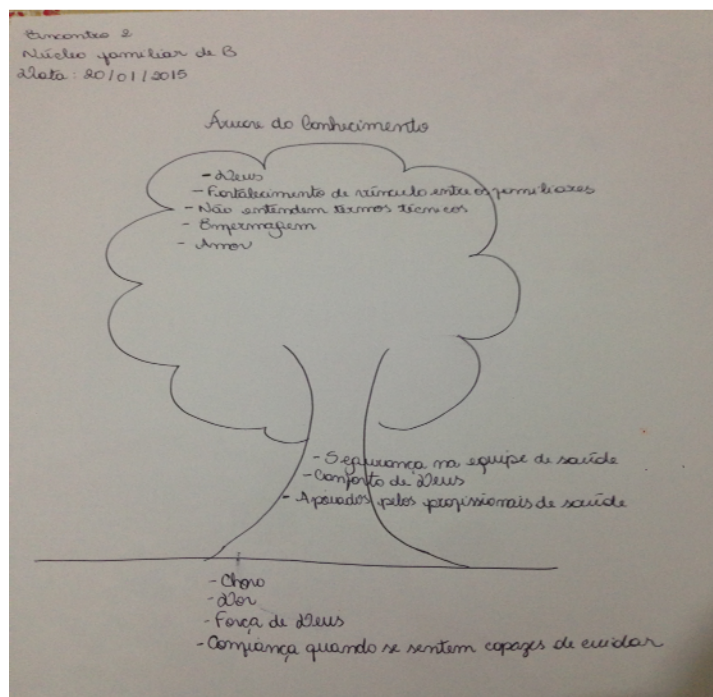 Encontro 2
Núcleo familiar de B
Data: 20/01/2015
Árvore do Conhecimento
- Deus
- Fortalecimento de vínculo entre os familiares
- Não entendem termos técnicos
- Enfermagem
- Amor
- Segurança na equipe de saúde
- Conforto de Deus
- Apoiados pelos profissionais de saúde
- Choro
- Dor
- Força de Deus
- Confiança quando se sentem capazes de cuidar